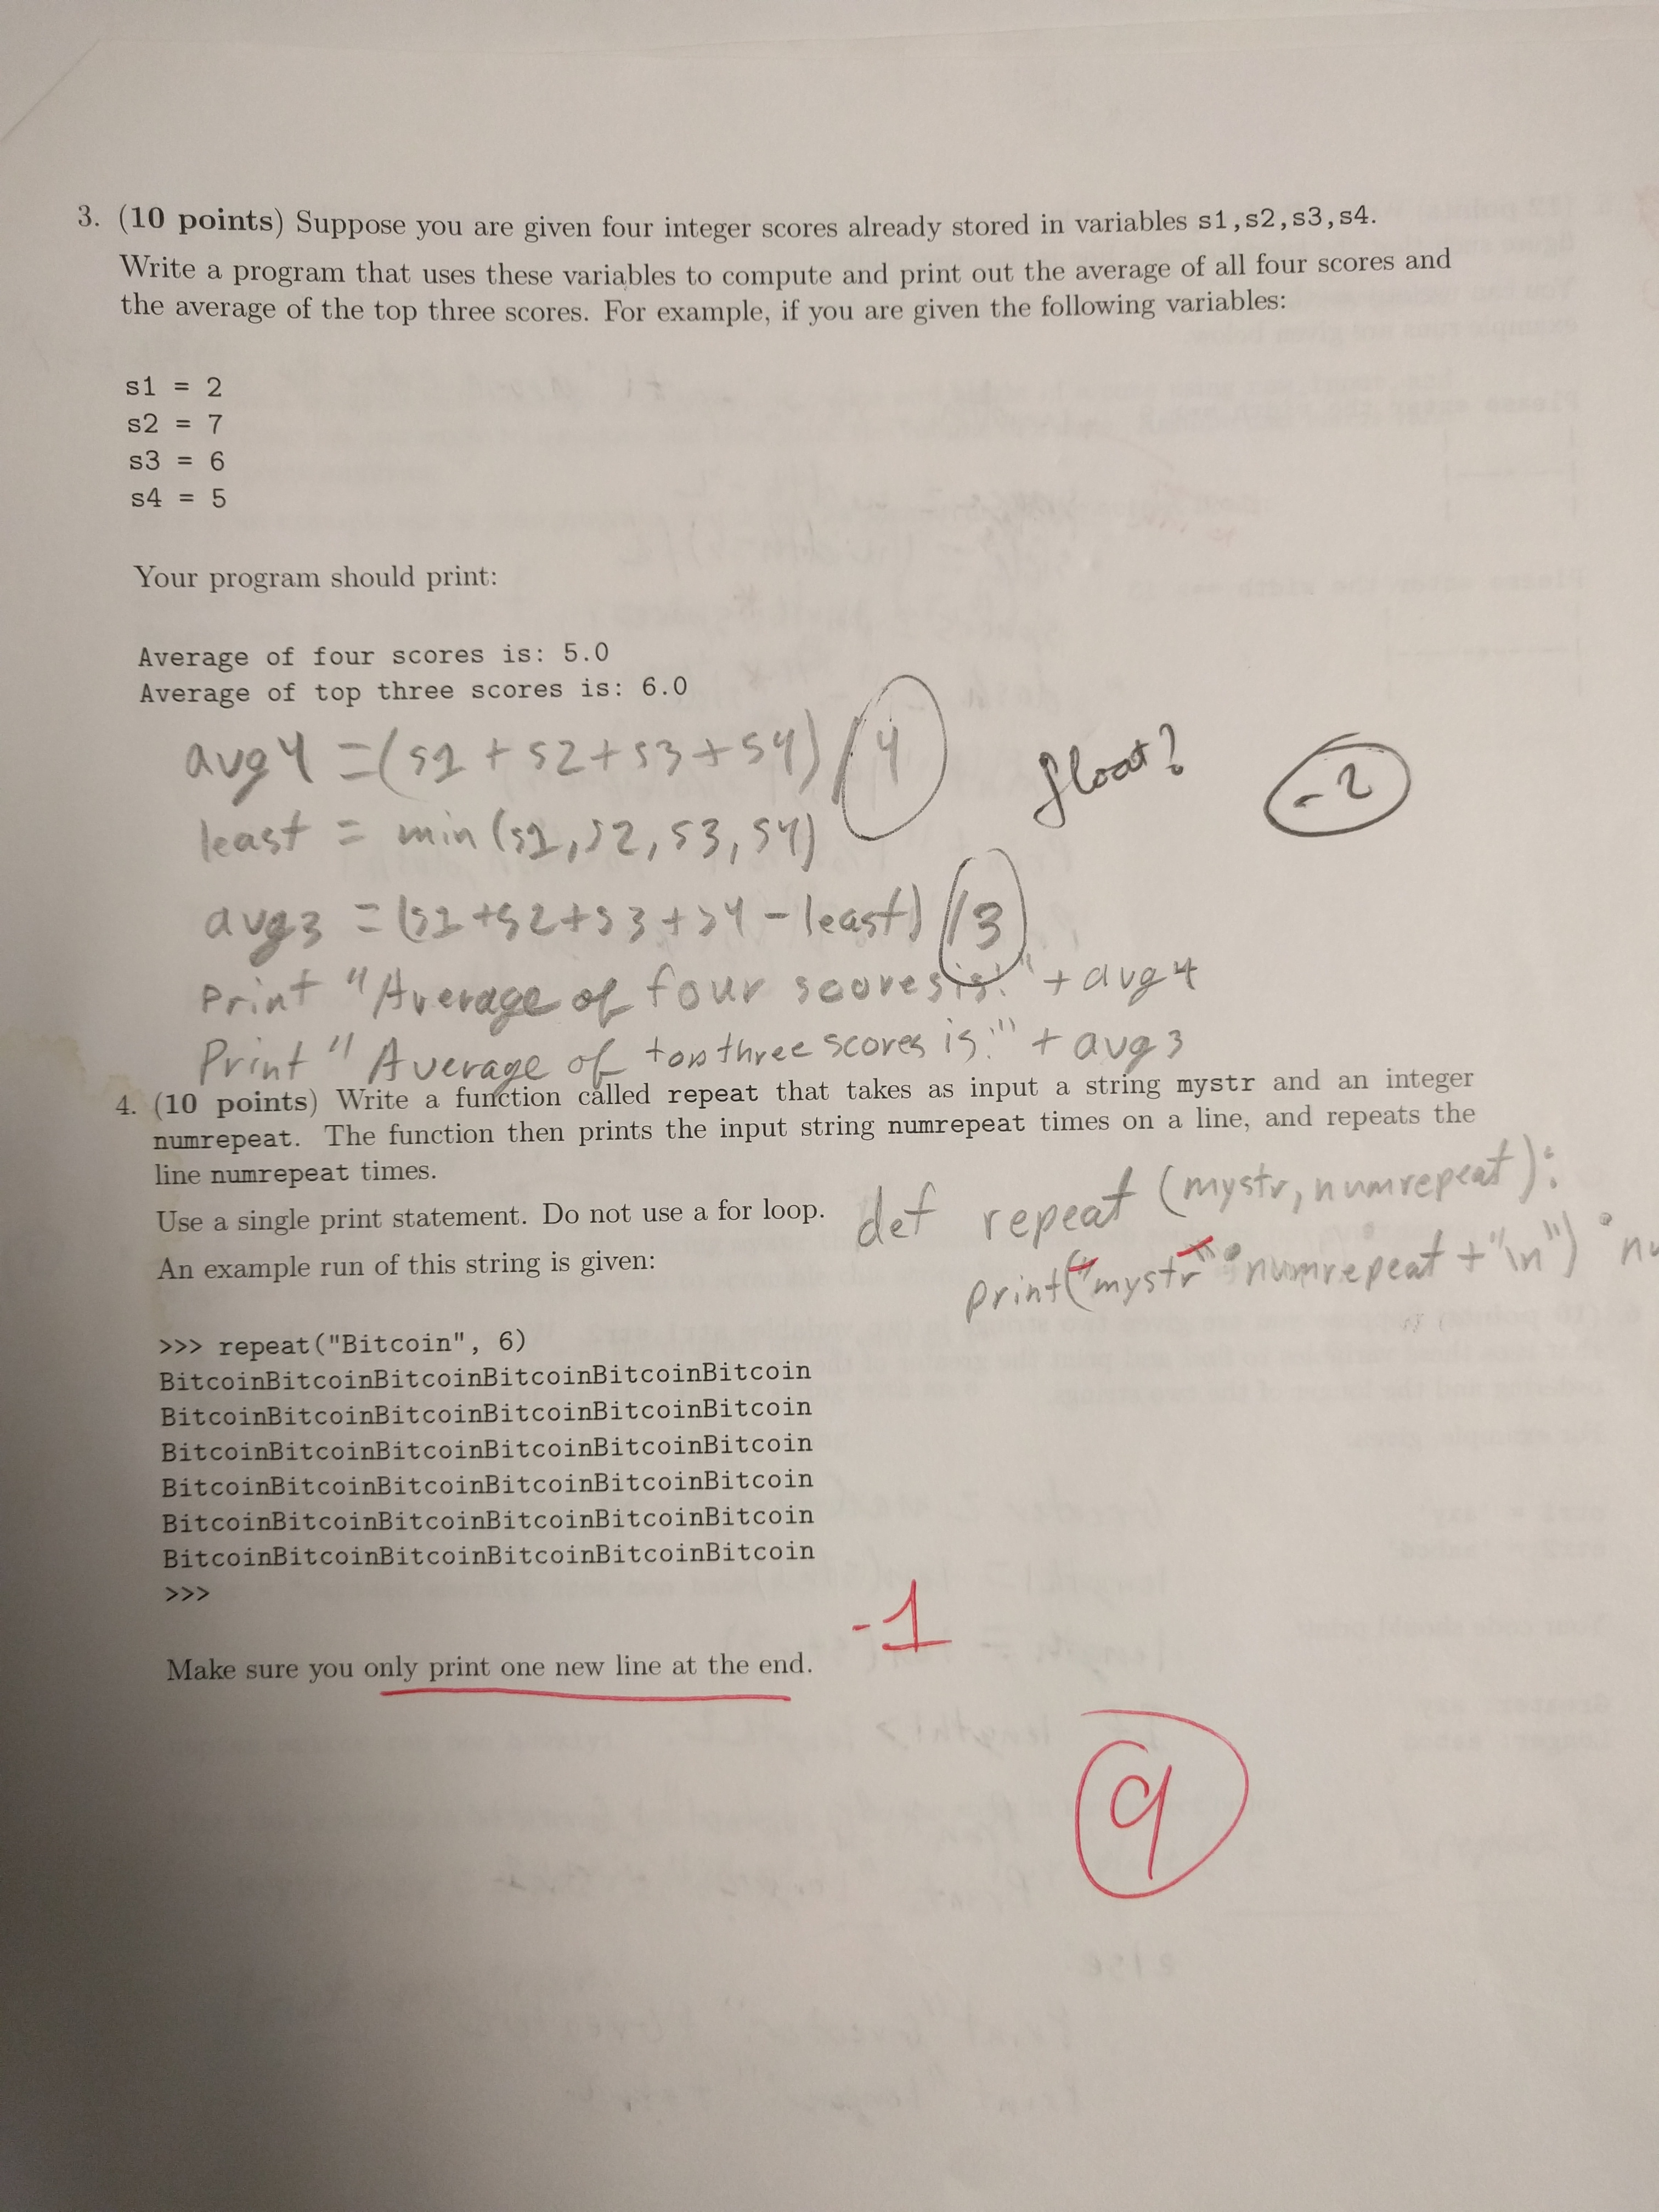 3. (10 points) Suppose you are given four integer scores already stored in variables s1,s2,s3,s4.
Write a program that uses these variables to compute and print out the average of all four scores and
the average of the top three scores. For example, if you are given the following variables:
s1 = 2
s2 = 7
s3 = 6
s4 = 5
Your program should print:
Average of four scores is: 5.0
Average of top three scores is: 6.0
avg4 =(s1 + s2+s3+s4)/4
float?
-2
least = min(s1,s2,s3,s4)
avg3 =(s1+s2+s3+s4-least)/3
print "Average of four scores is:"+avg4
Print "Average of top three scores is:" + avg3
4. (10 points) Write a function called repeat that takes as input a string mystr and an integer
numrepeat. The function then prints the input string numrepeat times on a line, and repeats the
line numrepeat times.
Use a single print statement. Do not use a for loop.
def repeat (mystr, numrepeat):
An example run of this string is given:
print("mystr" * numrepeat + "\n") *
>>> repeat("Bitcoin", 6)
BitcoinBitcoinBitcoinBitcoinBitcoinBitcoin
BitcoinBitcoinBitcoinBitcoinBitcoinBitcoin
BitcoinBitcoinBitcoinBitcoinBitcoinBitcoin
BitcoinBitcoinBitcoinBitcoinBitcoinBitcoin
BitcoinBitcoinBitcoinBitcoinBitcoinBitcoin
BitcoinBitcoinBitcoinBitcoinBitcoinBitcoin
>>>
-1
Make sure you only print one new line at the end.
9